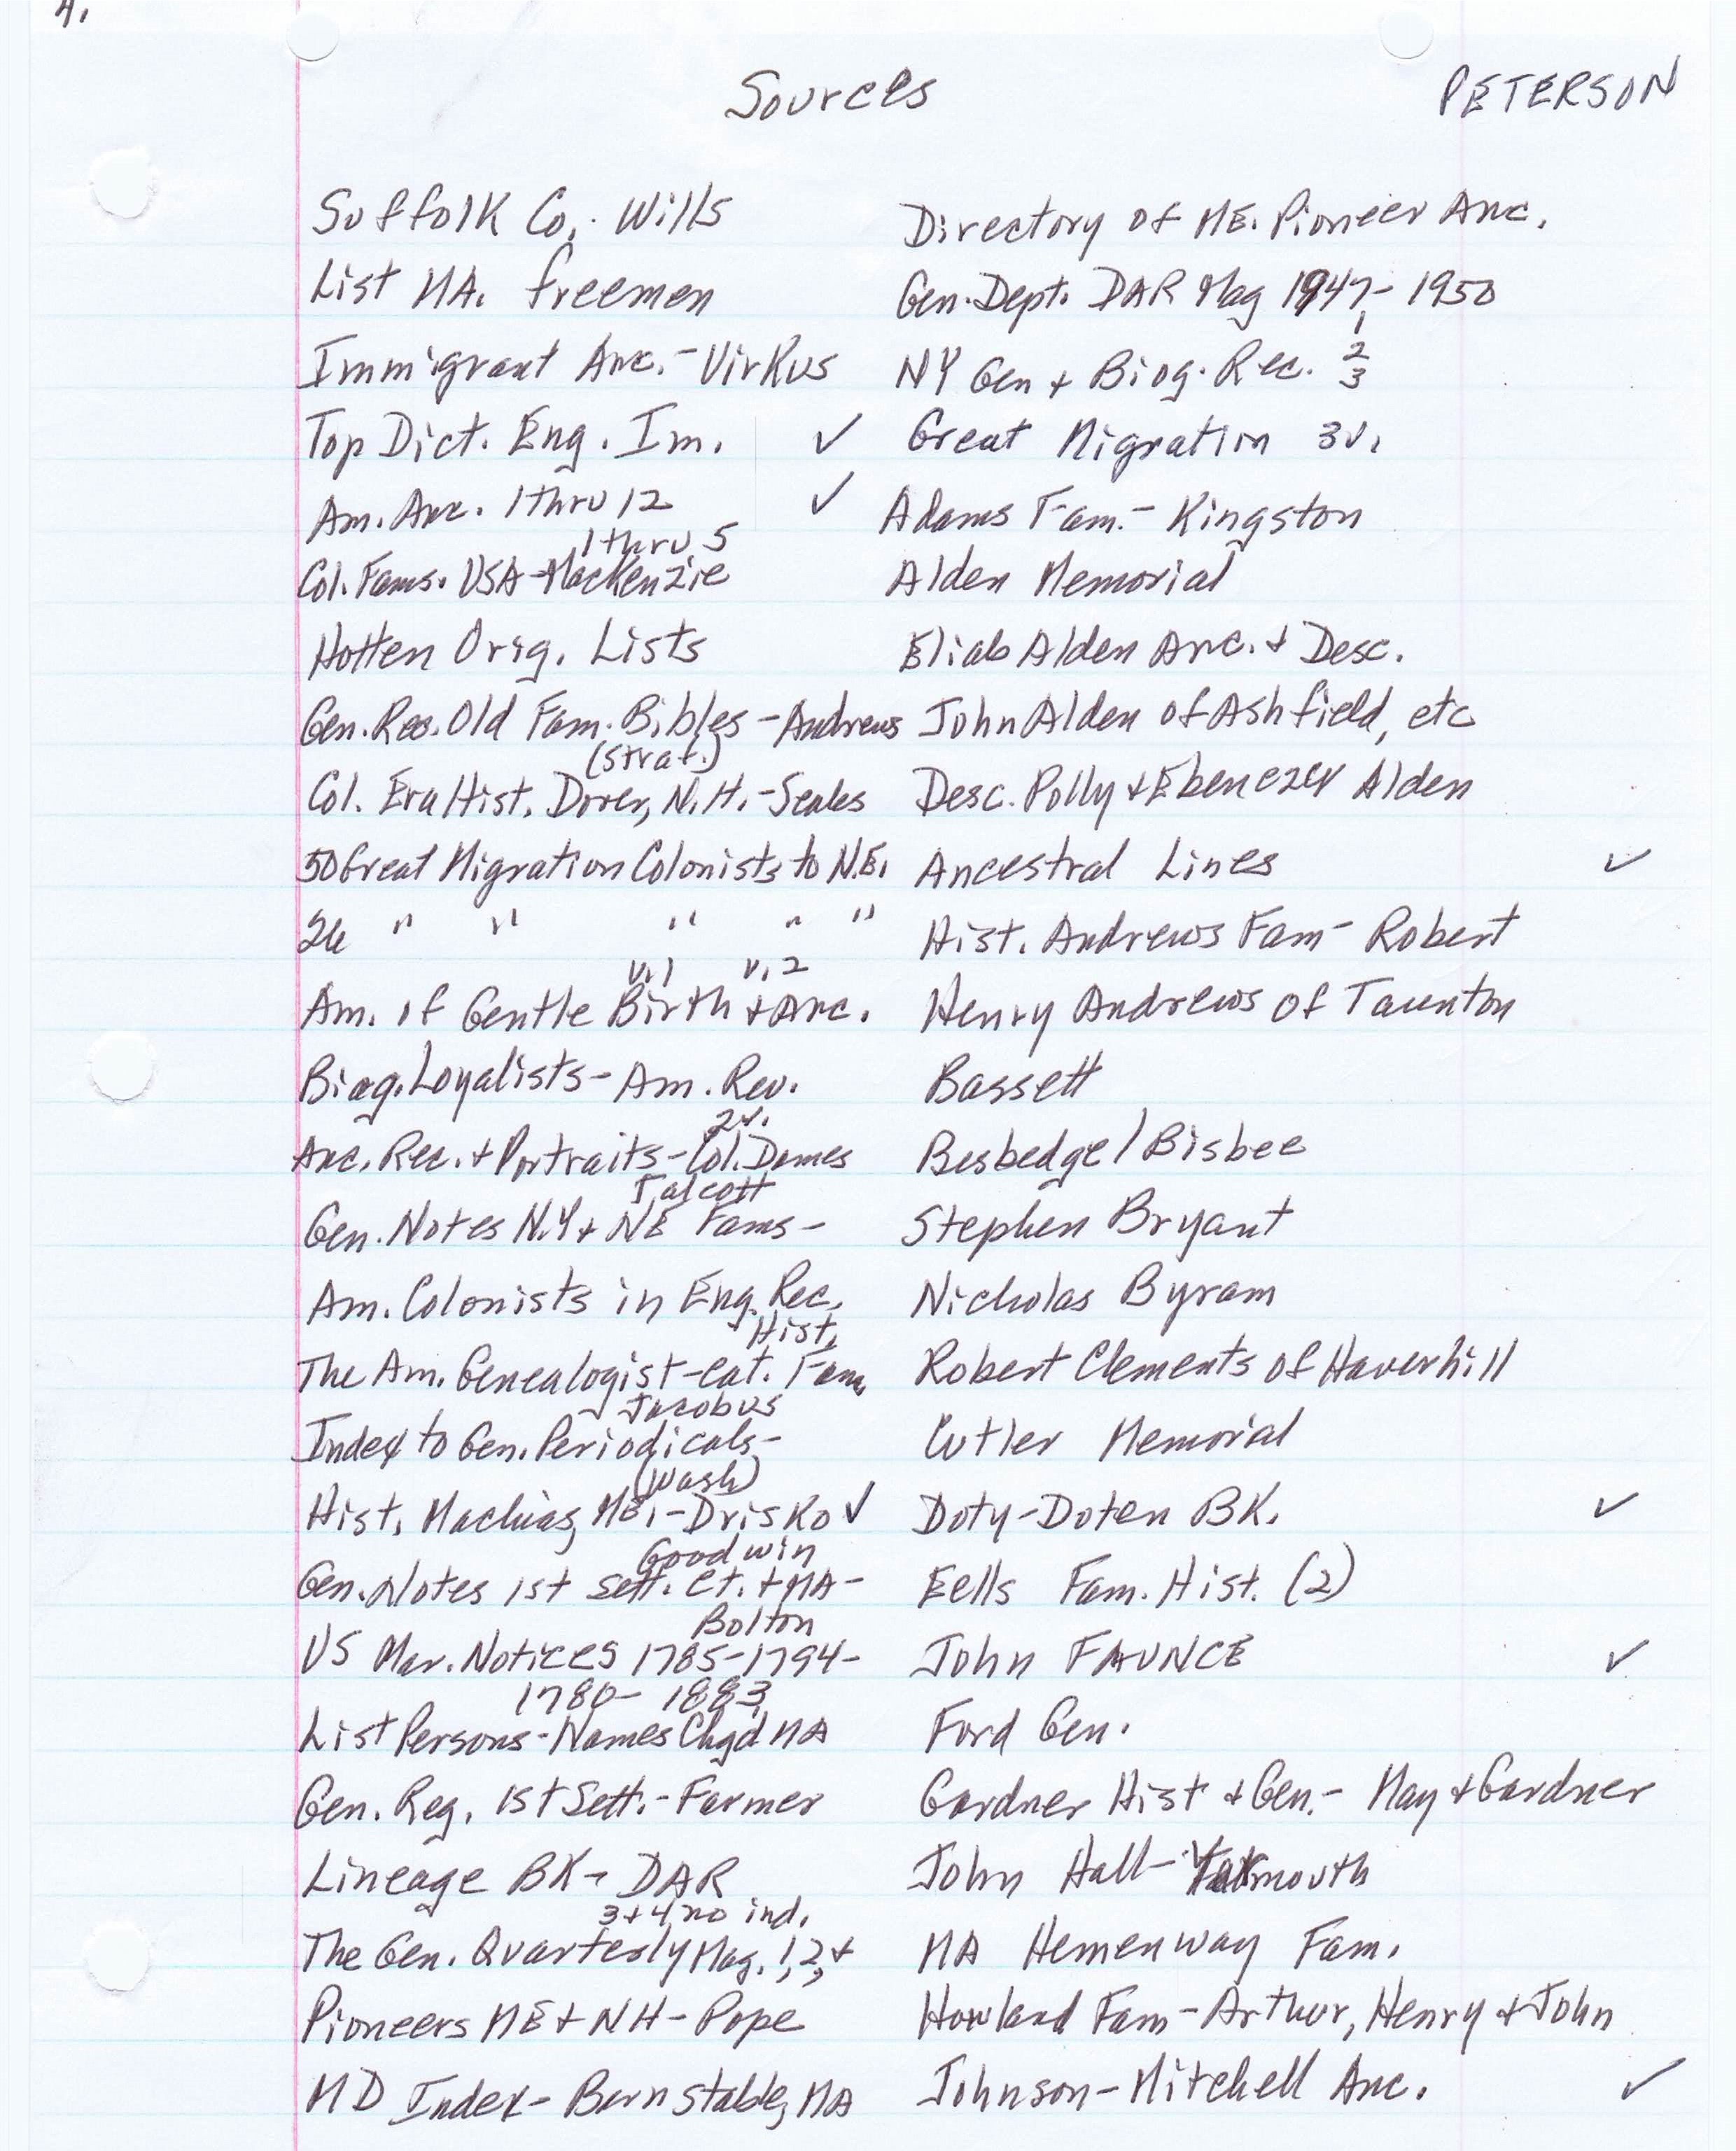 4.
Sources
PETERSON
Suffolk Co. Wills
List MA. freemen
Immigrant Anc. - Virkus
Top Dict. Eng. Im. ✓
Am. Anc. 1 thru 12 ✓
1 thru 5
Col. Fams. USA - MacKenzie
Hotten Orig. Lists
Gen. Rec. Old Fam. Bibles - Andrews
(Straf.)
Col. Era Hist. Dover, N.H. - Scales
50 Great Migration Colonists to N.E.
26 " " " " "
v.1 v.2
Am. of Gentle Birth + Anc.
Biog. Loyalists - Am. Rev.
2v.
Anc. Rec. + Portraits - Col. Dames
Talcott
Gen. Notes N.Y + NE Fams -
Am. Colonists in Eng. Rec.
Hist.
The Am. Genealogist - cat. Fam.
Jacobus
Index to Gen. Periodicals -
(Wash)
Hist. Machias, ME. - Drisko ✓
Goodwin
Gen. Notes 1st Sett. Ct. + MA -
Bolton
US Mar. Notices 1785-1794 -
1780 - 1883
List Persons - Names Chgd MA
Gen. Reg. 1st Sett. - Farmer
Lineage BK - DAR
3 + 4 no ind.
The Gen. Quarterly Mag. 1, 2, +
Pioneers ME + NH - Pope
MD Index - Barnstable, MA
Directory of ME. Pioneer Anc.
Gen. Dept. DAR Mag 1947 - 1950
NY Gen + Biog. Rec. 1, 2, 3
Great Migration 3v.
Adams Fam. - Kingston
Alden Memorial
Eliab Alden Anc. + Desc.
John Alden of Ashfield, etc
Desc. Polly + Ebenezer Alden
Ancestral Lines ✓
Hist. Andrews Fam - Robert
Henry Andrews of Taunton
Bassett
Besbedge / Bisbee
Stephen Bryant
Nicholas Byram
Robert Clements of Haverhill
Cutler Memorial
Doty-Doten BK. ✓
Eells Fam. Hist. (2)
John FAUNCE ✓
Ford Gen.
Gardner Hist + Gen. - May + Gardner
John Hall - Yarmouth
MA Hemenway Fam.
Howland Fam - Arthur, Henry + John
Johnson - Mitchell Anc. ✓